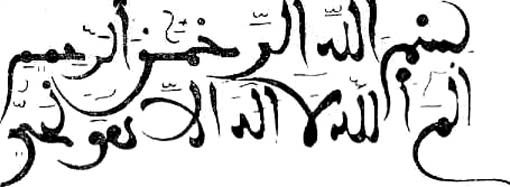 بسم الله الرحمن الرحيم
الم الله لا اله الا هو الحي